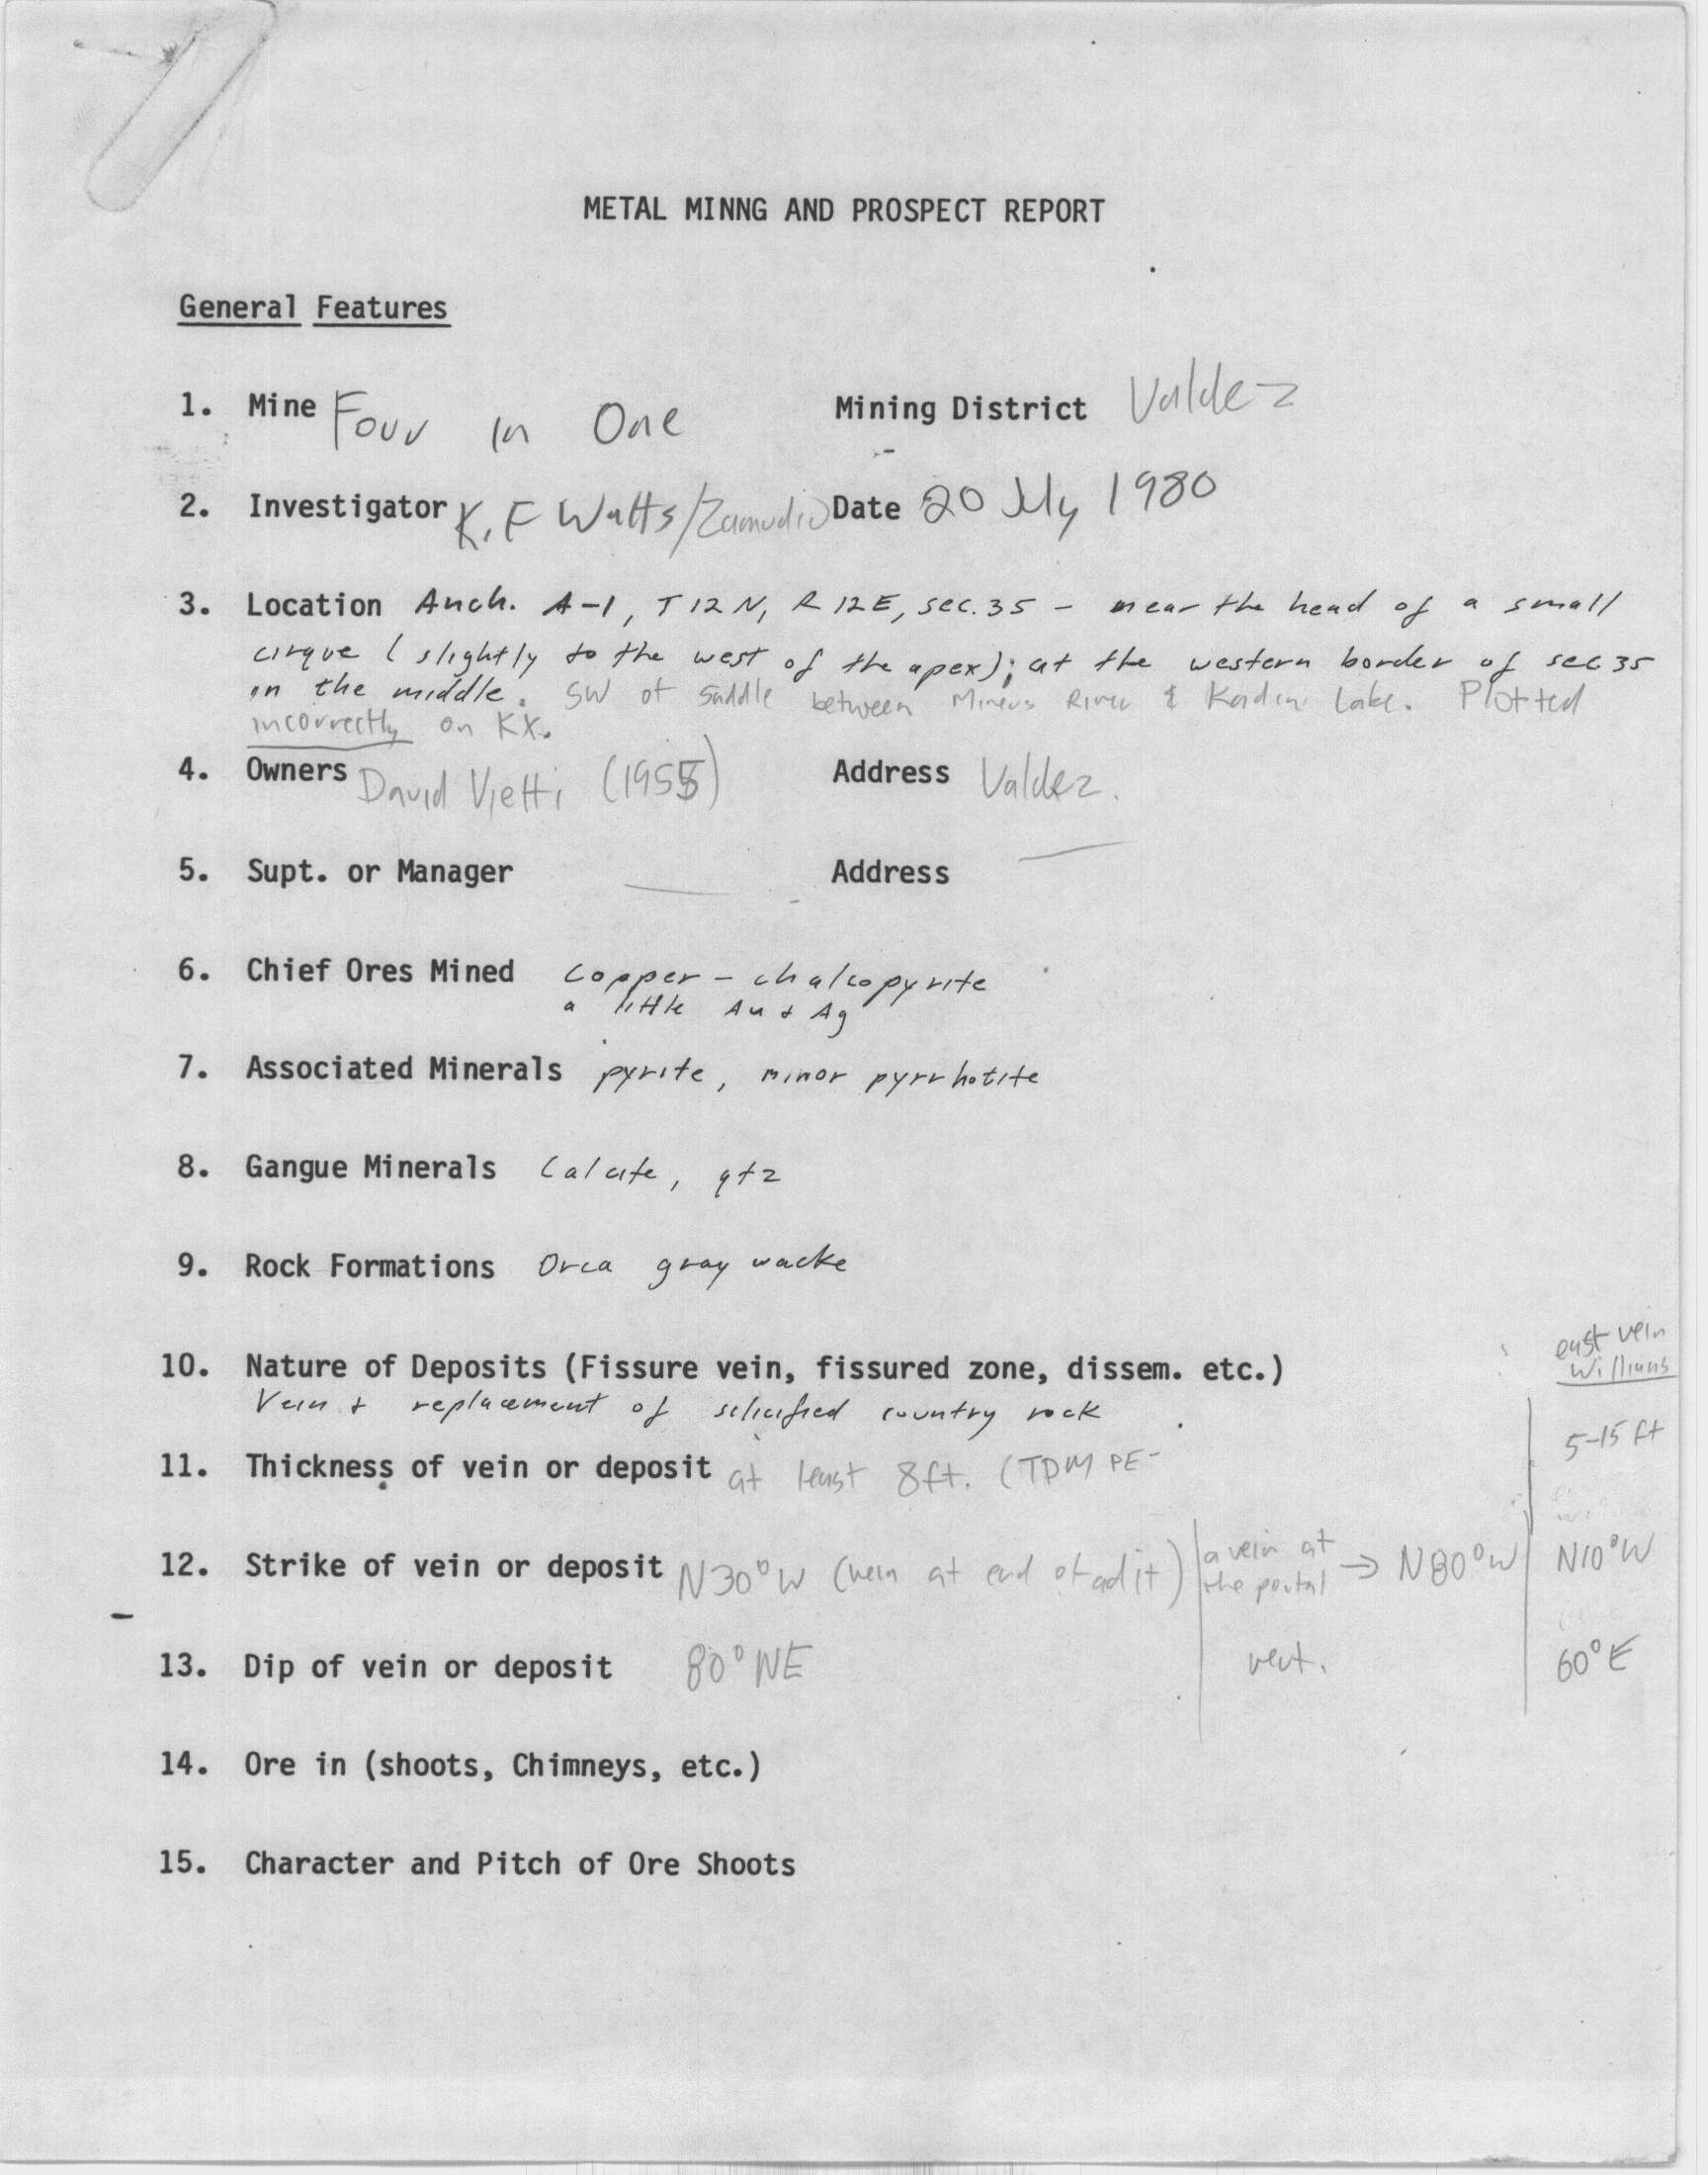 METAL MINNG AND PROSPECT REPORT
General Features
1. Mine Four in One Mining District Valdez
2. Investigator K.F Watts/Zamudio Date 20 July 1980
3. Location Anch. A-1, T12N, R12E, sec.35 - near the head of a small
cirque (slightly to the west of the apex); at the western border of sec 35
in the middle. SW of saddle between Miners River & Lake. Plotted
incorrectly on KX.
4. Owners David Vietti (1955) Address Valdez.
5. Supt. or Manager — Address —
6. Chief Ores Mined copper - chalcopyrite
a little Au & Ag
7. Associated Minerals pyrite, minor pyrrhotite
8. Gangue Minerals Calcite, qtz
9. Rock Formations Orca graywacke
east vein
Williams
10. Nature of Deposits (Fissure vein, fissured zone, dissem. etc.)
Vein & replacement of silicified country rock
11. Thickness of vein or deposit at least 8ft. (TDM PE- 5-15 ft
12. Strike of vein or deposit N30°W (vein at end of adit) a vein at the portal → N80°W N10°W
13. Dip of vein or deposit 80°NE vert. 60°E
14. Ore in (shoots, Chimneys, etc.)
15. Character and Pitch of Ore Shoots